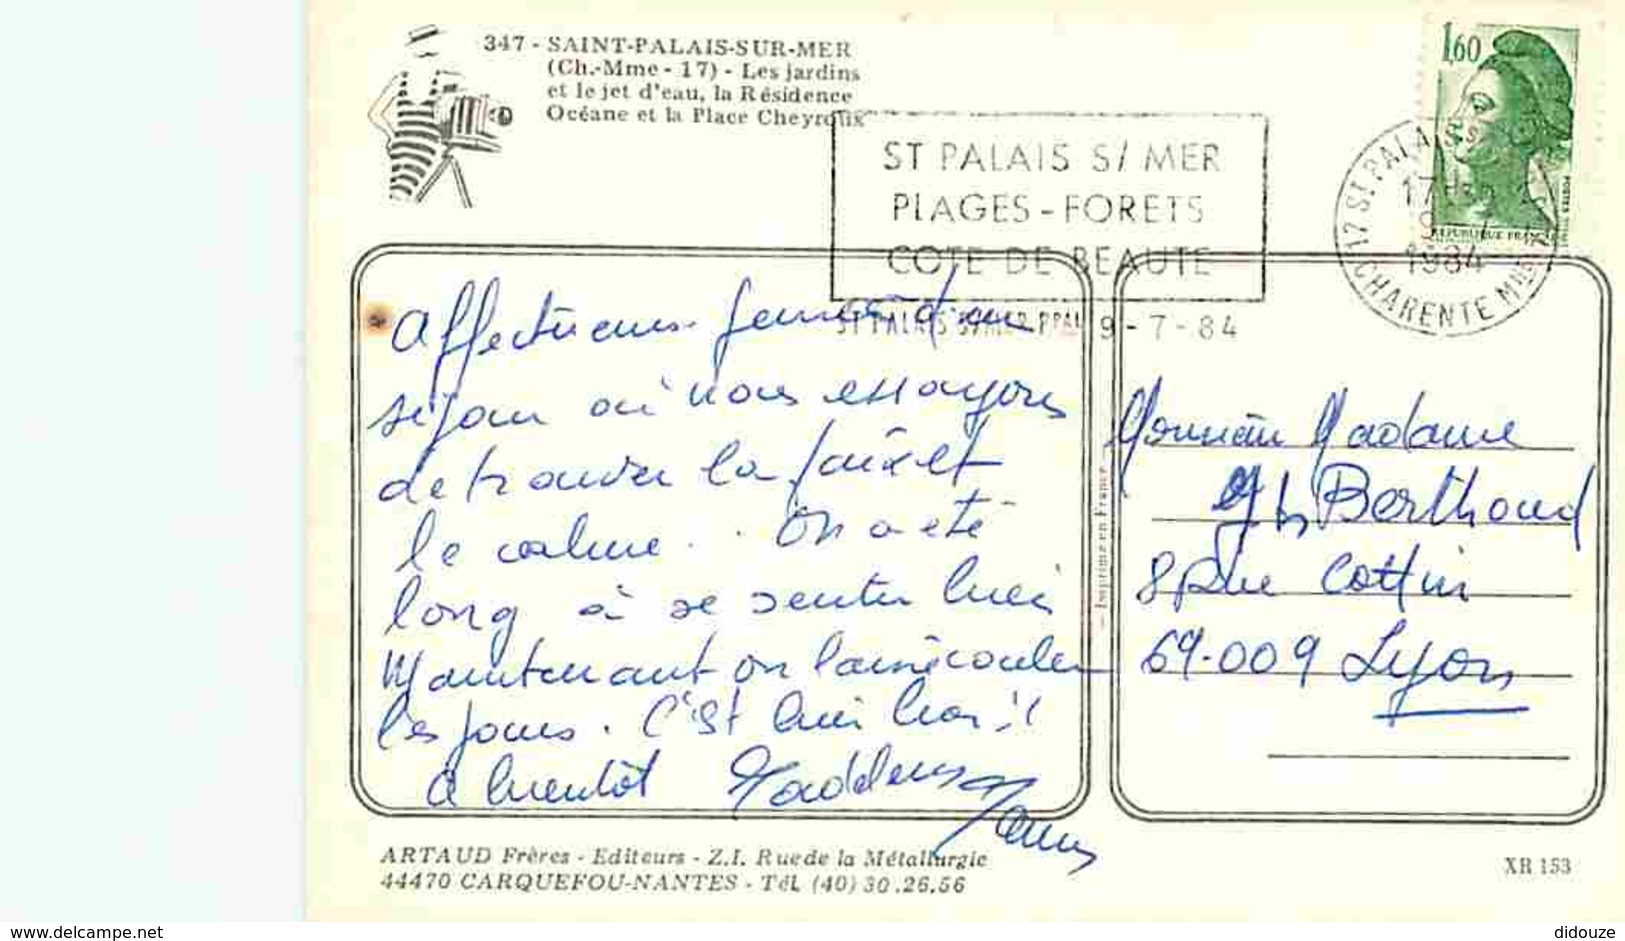 347 - SAINT-PALAIS-SUR-MER
(Ch.-Mme - 17) - Les jardins
et le jet d'eau, la Résidence
Océane et la Place Cheyroux
1,60
ST PALAIS S/ MER
PLAGES - FORETS
COTE DE BEAUTE
ST PALAIS S/MER PPAL 9 - 7 - 84
17 ST PALAIS S
17H
9
1984
CHARENTE MME
REPUBLIQUE FRANÇAISE
POSTES
Affectueuse pensée d'un
séjour où nous essayons
de trouver la paix et
le calme. On a été
long à se sentir bien
Maintenant on laisse couler
les jours. C'est bien bon!!
à bientôt
Monsieur Madame
Berthoud
8 Rue Cottin
69.009 Lyon
Imprimé en France
ARTAUD Frères - Editeurs - Z.I. Rue de la Métallurgie
44470 CARQUEFOU-NANTES - Tél. (40) 30.26.56
XR 153
www.delcampe.net
didouze